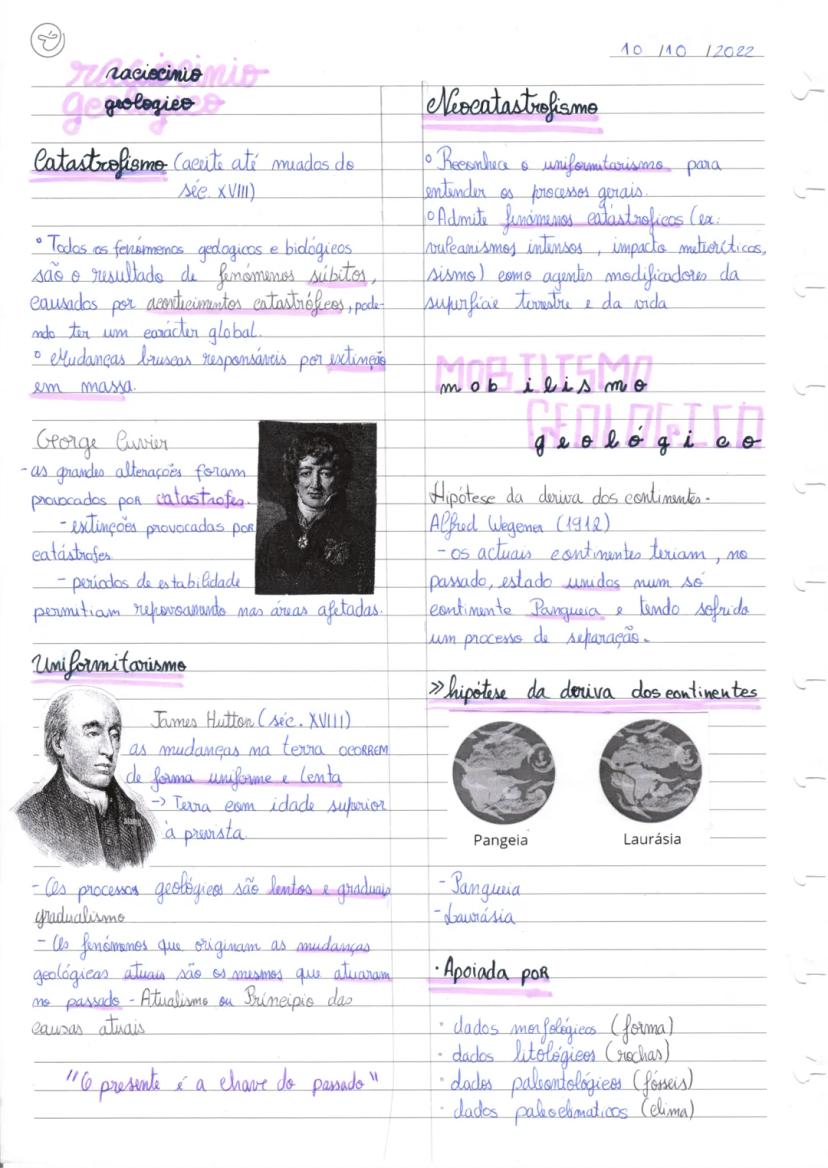 10 /10 /2022
raciocinio
geologico
Catastrofismo (aceite até meados do
séc. XVIII)
° Todos os fenómenos geologicos e biológicos
são o resultado de fenómenos súbitos,
causados por acontecimentos catastróficos, pode-
ndo ter um carácter global.
° Mudanças bruscas responsáveis por extinção
em massa.
George Cuvier
- as grandes alterações foram
provocados por catastrofes.
- extinções provocadas por
catástrofes
- períodos de estabilidade
permitiam repovoamento nas áreas afetadas.
Uniformitarismo
James Hutton (séc. XVIII)
as mudanças na terra ocorrem
de forma uniforme e lenta
-> Terra com idade superior
à prevista.
- Os processos geológicos são lentos e graduais
gradualismo
- Os fenómenos que originam as mudanças
geológicas atuais são os mesmos que atuaram
no passado - Atualismo ou Princípio das
causas atuais
"O presente é a chave do passado"
Neocatastrofismo
° Reconhece o uniformitarismo para
entender os processos gerais.
° Admite fenómenos catástroficos (ex:
vulcanismos intensos, impacto meteoríticos,
sismo) como agentes modificadores da
superfície terrestre e da vida
MOBILISMO
mobilismo
GEOLOGICO
geológico
Hipótese da deriva dos continentes.
Alfred Wegener (1912)
- os actuais continentes teriam, no
passado, estado unidos num só
continente Pangueia e tendo sofrido
um processo de separação.
>> hipótese da deriva dos continentes
Pangeia
Laurásia
- Pangueia
- Laurásia
· Apoiada por
· dados morfológicos (forma)
· dados litológicos (rochas)
· dados paleontológicos (fósseis)
· dados paleoclimaticos (clima)